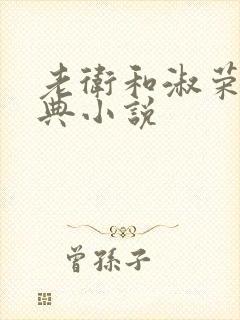 老衛和淑荣
典小説
曾孫子